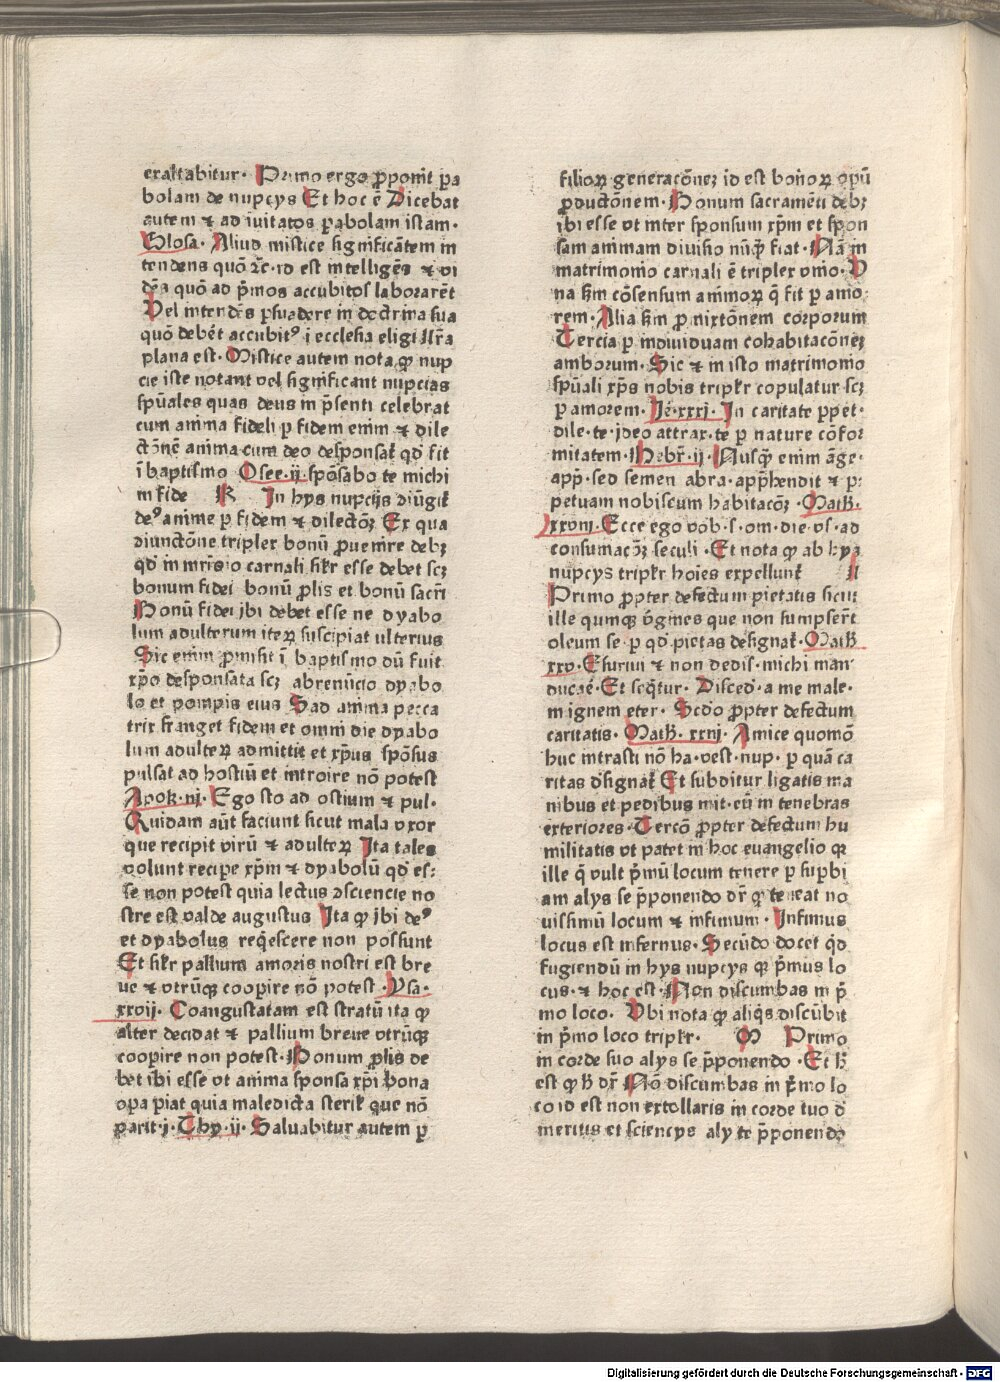 exaltabitur· Primo ergo ꝓponit̄ ꝑa
bolam de nupcys Et hoc ē Dicebat
autem ⁊ ad īuitatos ꝑabolam istam·
Glosa· Aliud mistice significātem in
tendens quō ⁊c̄·id est intelligēs ⁊ vi
dēs quō ad p̄mos accubitos laborarēt
Vel intendēs ꝑsuadere in doctrina sua
quō debēt accubitꝰ ī ecclesia eligi Lr̄a
plana est· Mistice autem nota ꝙ nup
cie iste notant vel significant nupcias
spūales quas deus in p̄senti celebrat
cum anima fideli ꝑ fidem enim ⁊ dile
ctōnē anima cum deo desponsat̄ qd̄ fit
ī baptismo Osee·ij·spōsabo te michi
in fide R In hys nupcijs diūgit̄
deꝰ anime ꝑ fidem ⁊ dilectōꝫ Ex qua
diunctōne triplex bonū ꝓuenire debꝫ
qd̄ in mr̄i̅o carnali silr̄ esse debet scꝫ
bonum fidei bonū ꝓlis et bonū sacr̄i
Bonū fidei ibi debet esse ne dyabo
lum adulterum iteꝝ suscipiat ulterius
Sic enim ꝓmisit ī baptismo dū fuit
xp̄o desponsata scꝫ abrenūcio dyabo
lo et pompis eius Sad anima pecca
trix franget fidem et omni die dyabo
lum adulteꝝ admittit et xp̄us spōsus
pulsat ad hostiū et introire nō potest
Apok·iij· Ego sto ad ostium ⁊ pul·
Quidam aūt faciunt sicut mala vxor
que recipit virū ⁊ adulteꝝ Ita tales
volunt recipe xp̄m ⁊ dyabolū qd̄ es:
se non potest quia lectus ↄsciencie no
stre est valde augustus Ita ꝙ ibi deꝰ
et dyabolus reqͥescere non possunt
Et silr̄ pallium amoris nostri est bre
ue ⁊ vtrūqꝫ cooꝑire nō potest ·Ysa·
xxviij· Coangustatam est stratū ita ꝙ
alter decidat ⁊ pallium breue vtrūqꝫ
cooꝑire non potest· Bonum ꝓlis de
bet ibi esse vt anima sponsa xp̄i bona
oꝑa ꝑiat quia maledicta steril̄ que nō
ꝑarit·j·Thy·ij· Saluabitur autem ꝑ
filioꝝ generacōneꝫ id est bonoꝝ opū
ꝓductōnem· Bonum sacramēti debꝫ
ibi esse vt inter sponsum xp̄m et spon
sam animam diuisio nūqͣ fiat· Nā in
matrimonio carnali ē triplex vnio· V
na scd̄m cōsensum animoꝝ q̄ fit ꝑ amo
rem· Alia scd̄m ꝑ mixtōnem corporum
Tercia ꝑ indiuiduam cohabitacōneꝫ
amborum· Sic ⁊ in isto matrimonio
spūali xp̄s nobis triplr̄ copulatur scꝫ
ꝑ amorem· Je·xxxj· In caritate ꝑpet·
dile·te·ideo attrax·te ꝑ nature cōfor
mitatem· Hebr̄·ij· Nusqͣ enim āge·
app̄·sed semen abra·app̄hendit ⁊ ꝑ:
petuam nobiscum habitacōꝫ· Math̄·
xxviij·Ecce ego vōb·s·om·die·vs·ad
consumacōꝫ seculi ·Et nota ꝙ ab hys
nupcys triplr̄ hoīes expellunt̄ N
Primo ꝓpter defectum pietatis sicut
ille quinqꝫ v̄gines que non sumpserūt
oleum se·ꝑ qd̄ pietas designat̄· Math̄
xxv·Esuriui ⁊ non dedis·michi man
ducaē·Et seq̄tur· Disced·a me male·
in ignem eter· Scd̄o ꝓpter defectum
caritatis· Math̄·xxij· Amice quomō
huc intrasti nō ha·vest·nup· ꝑ quā ca
ritas dsignat̄ Et subditur ligatis ma
nibus et pedibus mit·eū in tenebras
exteriores·Tercō ꝓpter defectum hu
militatis vt patet in hoc euangelio qꝫ
ille q̄ vult p̄mū locum tenere ꝑ suꝑbi
am alys se p̄ponendo dr̄ ꝙ teneat no
uissimū locum ⁊ infimum· Infimus
locus est infernus· Secūdo docet qd̄
fugiendū in hys nupcys qꝫ p̄mus lo
cus·⁊ hoc est·Non discumbas in p̄
mo loco· Vbi nota ꝙ aliqͥs discūbit
in p̄mo loco triplr̄· M Primo
in corde suo alys se p̄ponendo ·Et h̄
est ꝙ h̄ dr̄ Nō discumbas in p̄mo lo
co id est non extollaris in corde tuo d̄
meritis et sciencys aly te p̄ponendo
Digitalisierung gefördert durch die Deutsche Forschungsgemeinschaft - DFG